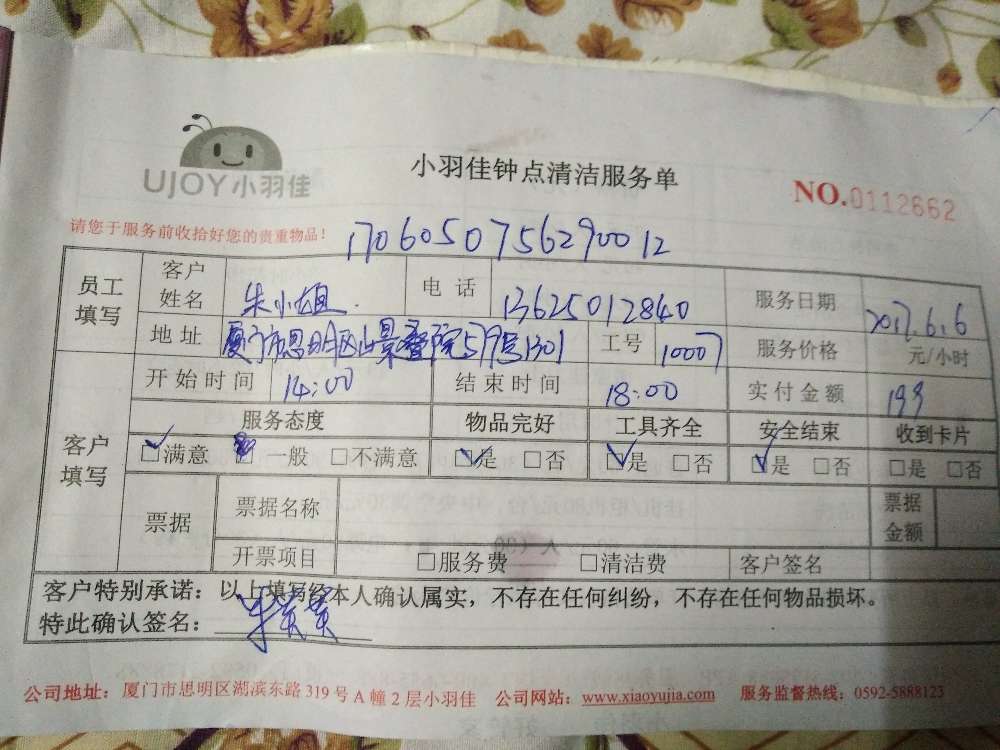 UJOY小羽佳
小羽佳钟点清洁服务单
NO.0112662
请您于服务前收拾好您的贵重物品！
1706050756290012
员工填写 客户姓名 朱小姐. 电话 13625012840 服务日期 2017.6.6
地址 厦门市思明区山景叠院57号1301 工号 10007 服务价格 元/小时
客户填写 开始时间 14:00 结束时间 18:00 实付金额 199
服务态度 物品完好 工具齐全 安全结束 收到卡片
☑满意 □一般 □不满意 ☑是 □否 ☑是 □否 ☑是 □否 □是 □否
票据 票据名称 票据金额
开票项目 □服务费 □清洁费 客户签名
客户特别承诺：以上填写经本人确认属实，不存在任何纠纷，不存在任何物品损坏。
特此确认签名：
公司地址：厦门市思明区湖滨东路319号A幢2层小羽佳 公司网站：www.xiaoyujia.com 服务监督热线：0592-5888123